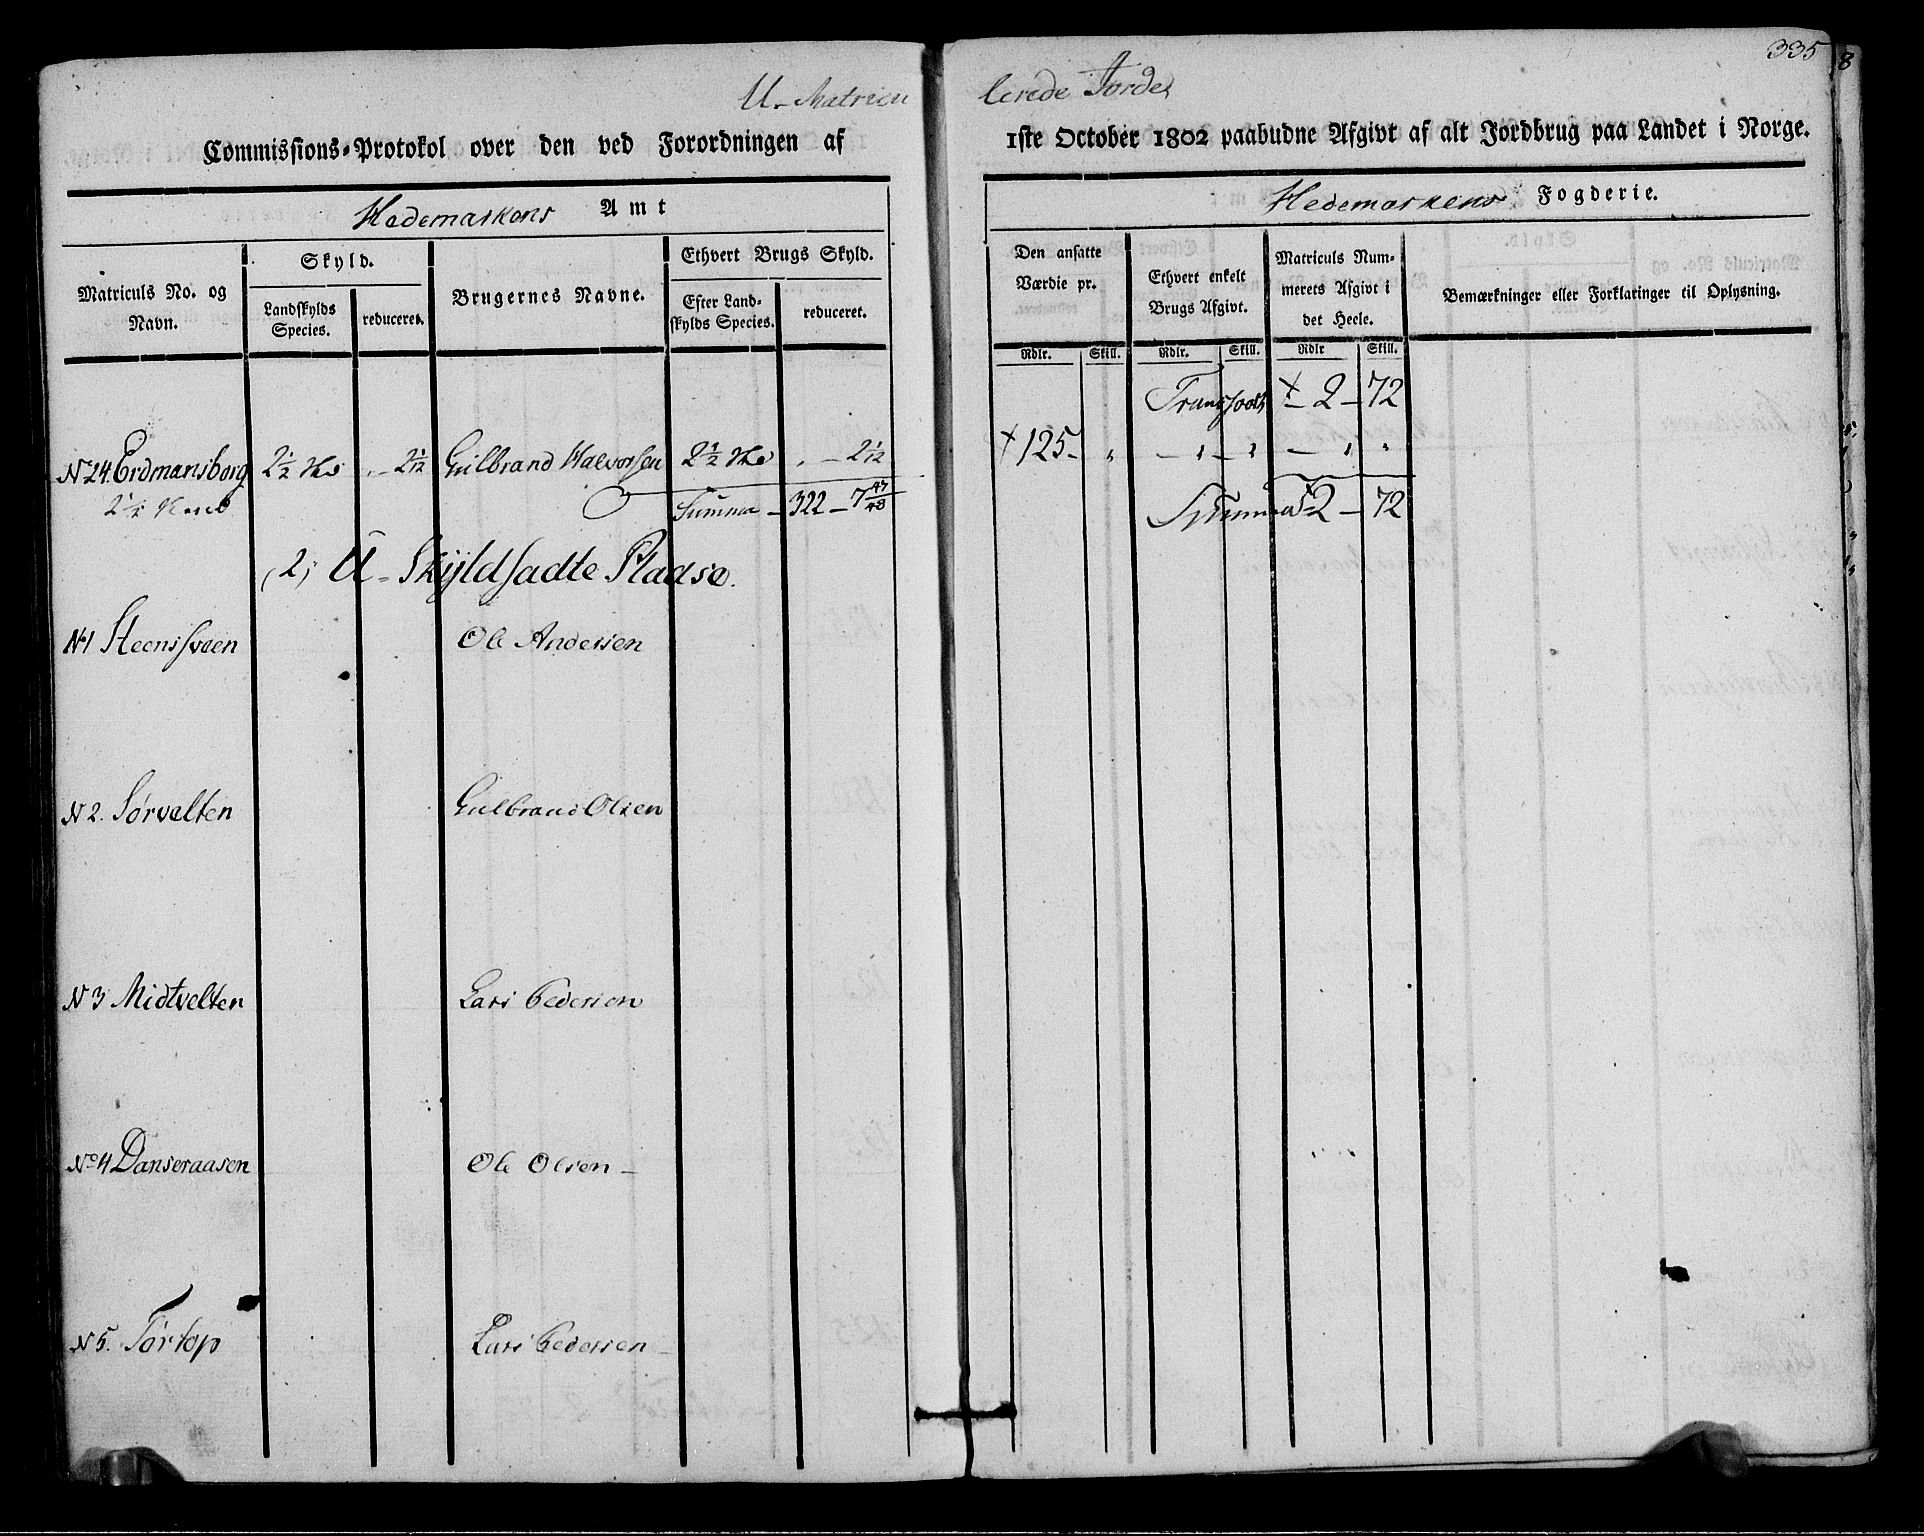 335
8
U-Matricu
lerede Jorder
Commissions-Protokol over den ved Forordningen af
1ste October 1802 paabudne Afgivt af alt Jordbrug paa Landet i Norge.
Hedemarkens Amt
Hedemarkens Fogderie.
Matriculs No. og Navn.
Skyld.
Landskylds Species.
reduceret.
Brugernes Navne.
Ethvert Brugs Skyld.
Efter Land-
skylds Species.
reduceret.
Den ansatte
Værdie pr.
Ethvert enkelt
Brugs Afgivt.
Matriculs Num-
merets Afgivt i
det Heele.
Bemærkninger eller Forklaringer til Oplysning.
Rdlr. Skill. Rdlr. Skill. Rdlr Skill.
Transport 2 - 72
N 24. Erdmansborg 2½ - 2 1/12 Gulbrand Halvorsen 2½ - 2 1/12 125 -
2½
Summa - 322 - 7 43/48 Summa 2 - 72
2, U-Skyldsadte Pladse.
N 1 Steenssveen Ole Andersen
N 2. Sørvelten Gulbrand Olsen
N 3 Midtvelten Lars Pedersen
No 4 Danseraasen Ole Olsen -
N 5. Tørtop Lars Pedersen -